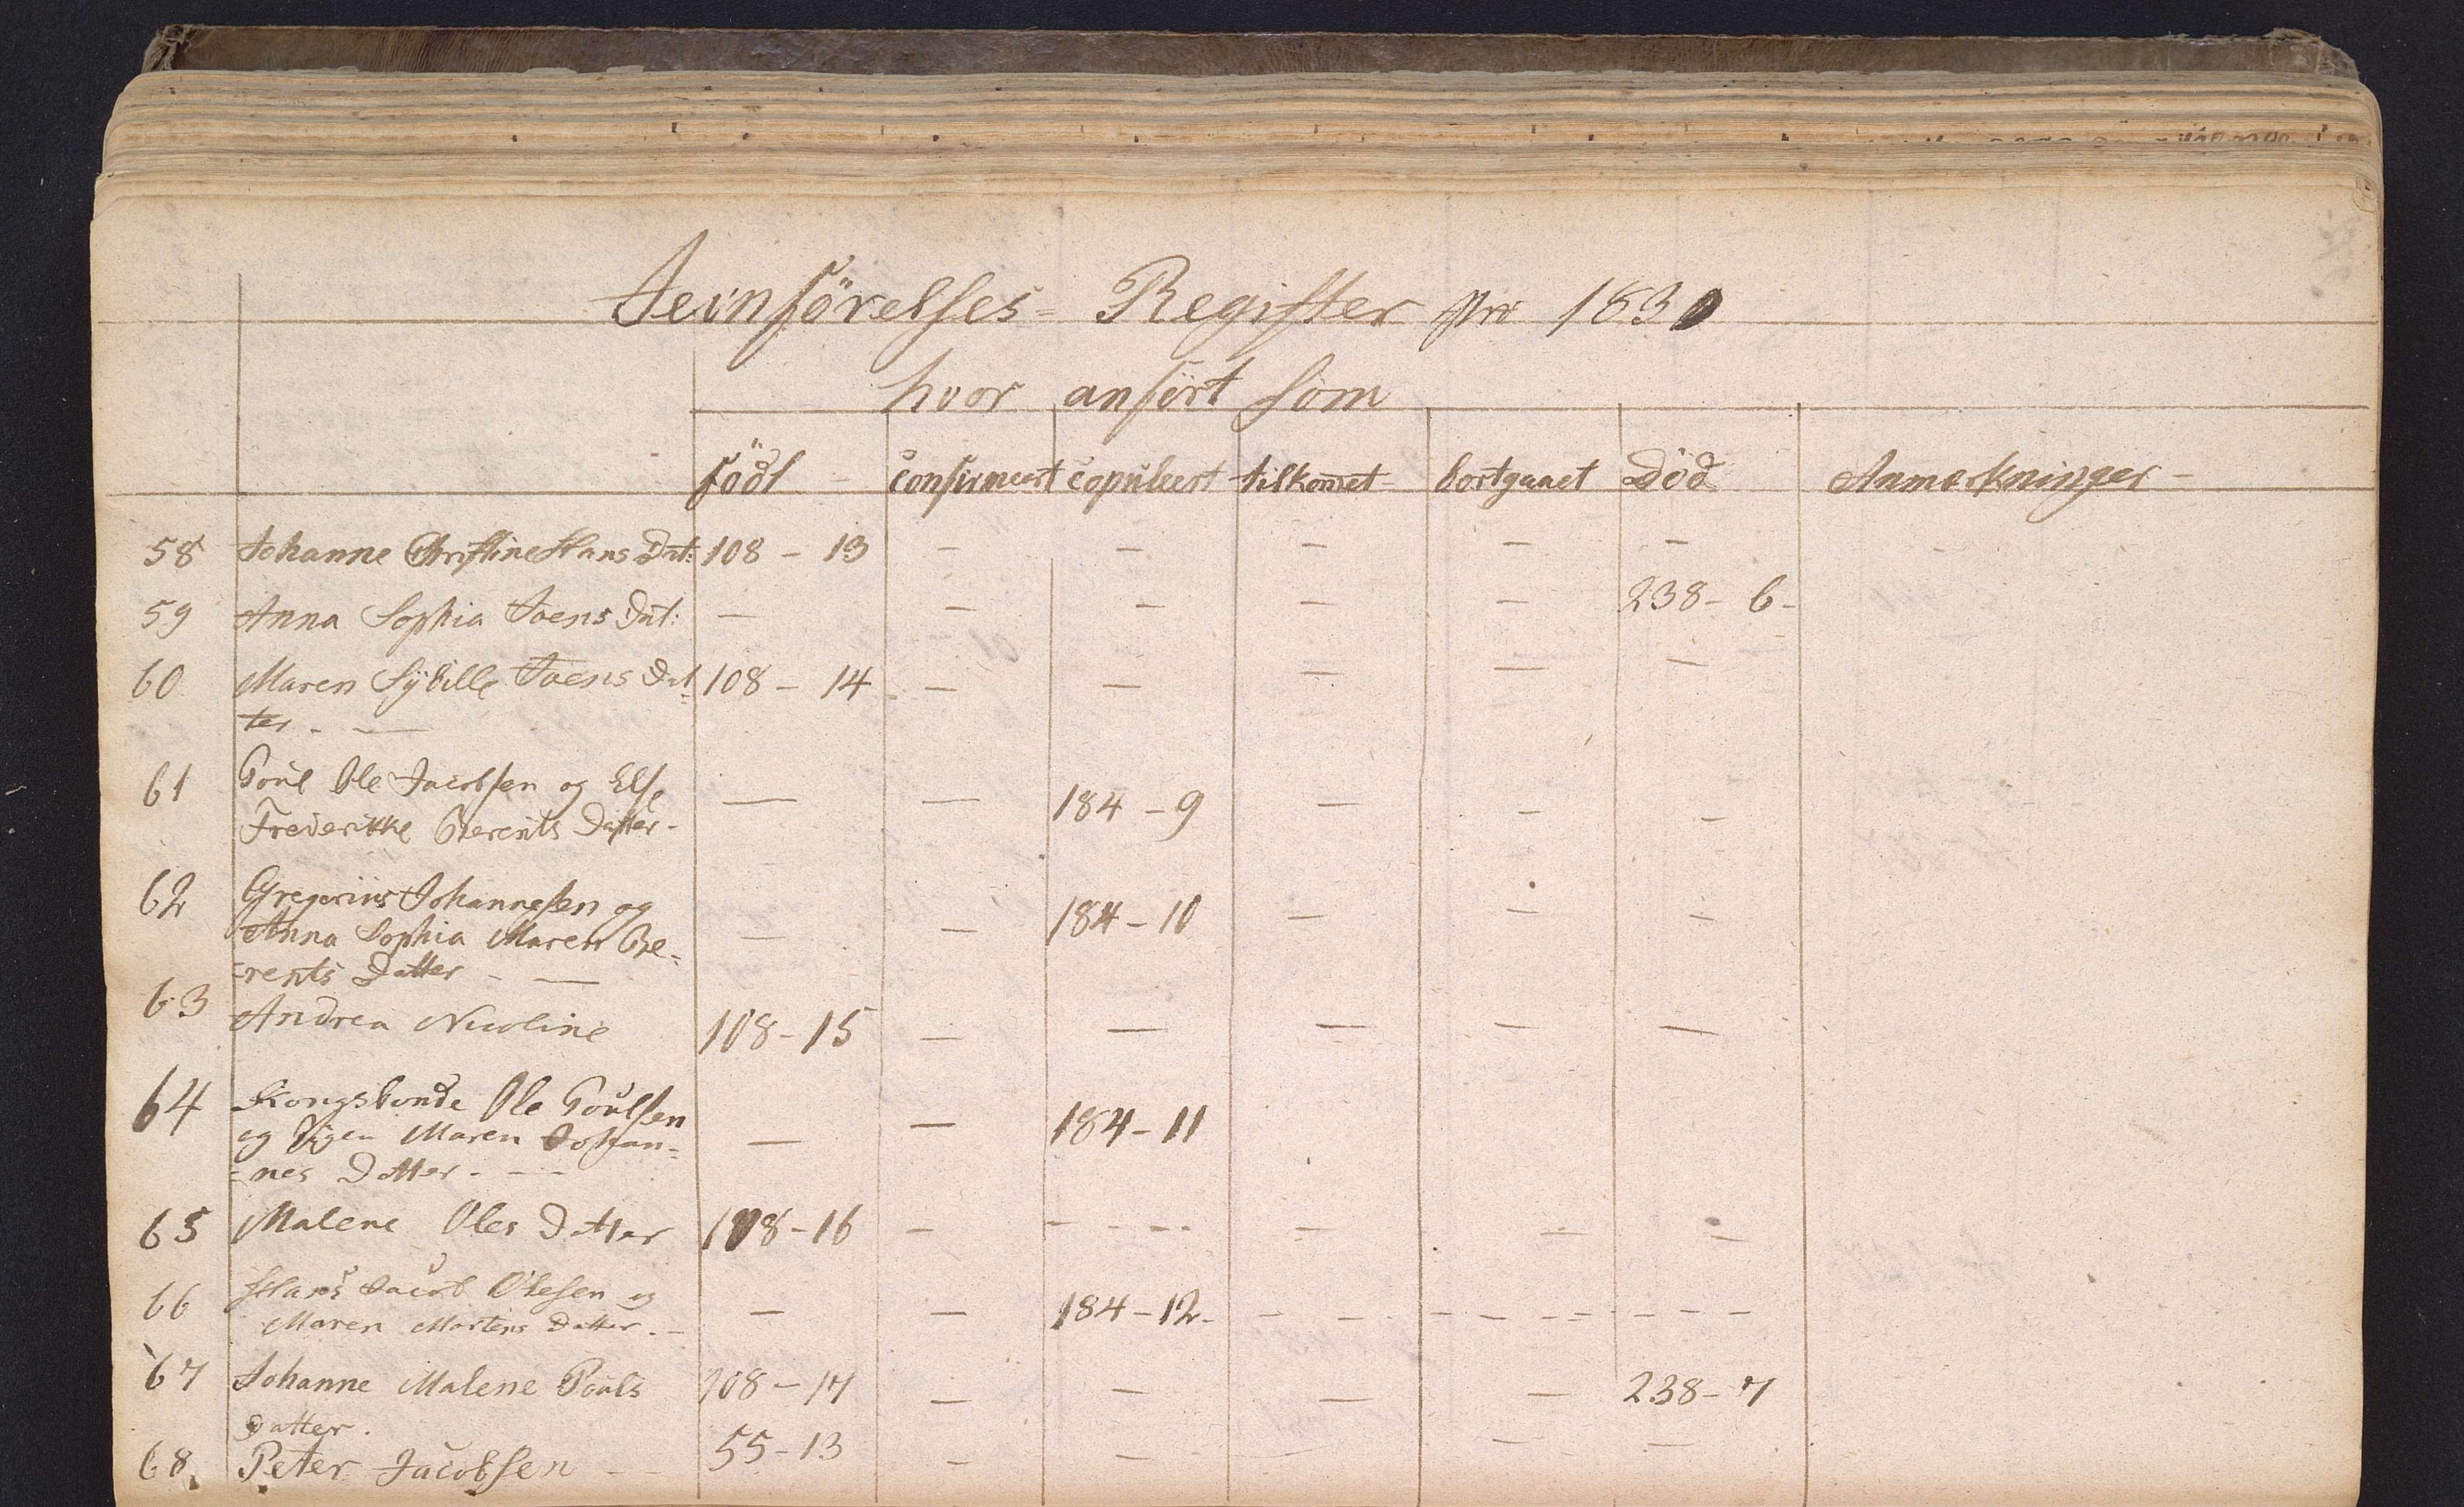 Jevnförelses- Register pro 1830
hvor anfört som
födt - confirmeert copuleert tilkomet bortgaaet Död Anmerkninger -
58 Johanne Christine Hans Dat: 108 - 13 - - - - -
59 Anna Sophia Joens Dat: - - - - - 238 - 6 -
60 Maren Sÿbille Joens Dat= 108 - 14 - - - - -
ter. -
61 Poul Ole Jacobsen og Else
Frederikke Berents Datter - - - 184 - 9 - - -
62 Gregorius Johannesen og
Anna Sophia Maren Be= - - 184 - 10 - - -
=rents Datter - -
63 Andrea Nicoline 108 - 15 - - - - -
64 Kongsbonde Ole Poulsen
og Pigen Maren Johan= - - 184 - 11
=nes Datter - -
65 Malene Oles Datter 108 - 16 - - - - - - -
66 Hans Jacob Olesen og
Maren Mortens Datter. - - - 184 - 12 - - - - - - - - - -
67 Johanne Malene Pouls 108 - 17 - - - - 238 - 7
Datter.
68. Peter Jacobsen - - 55 - 13 - - - - -